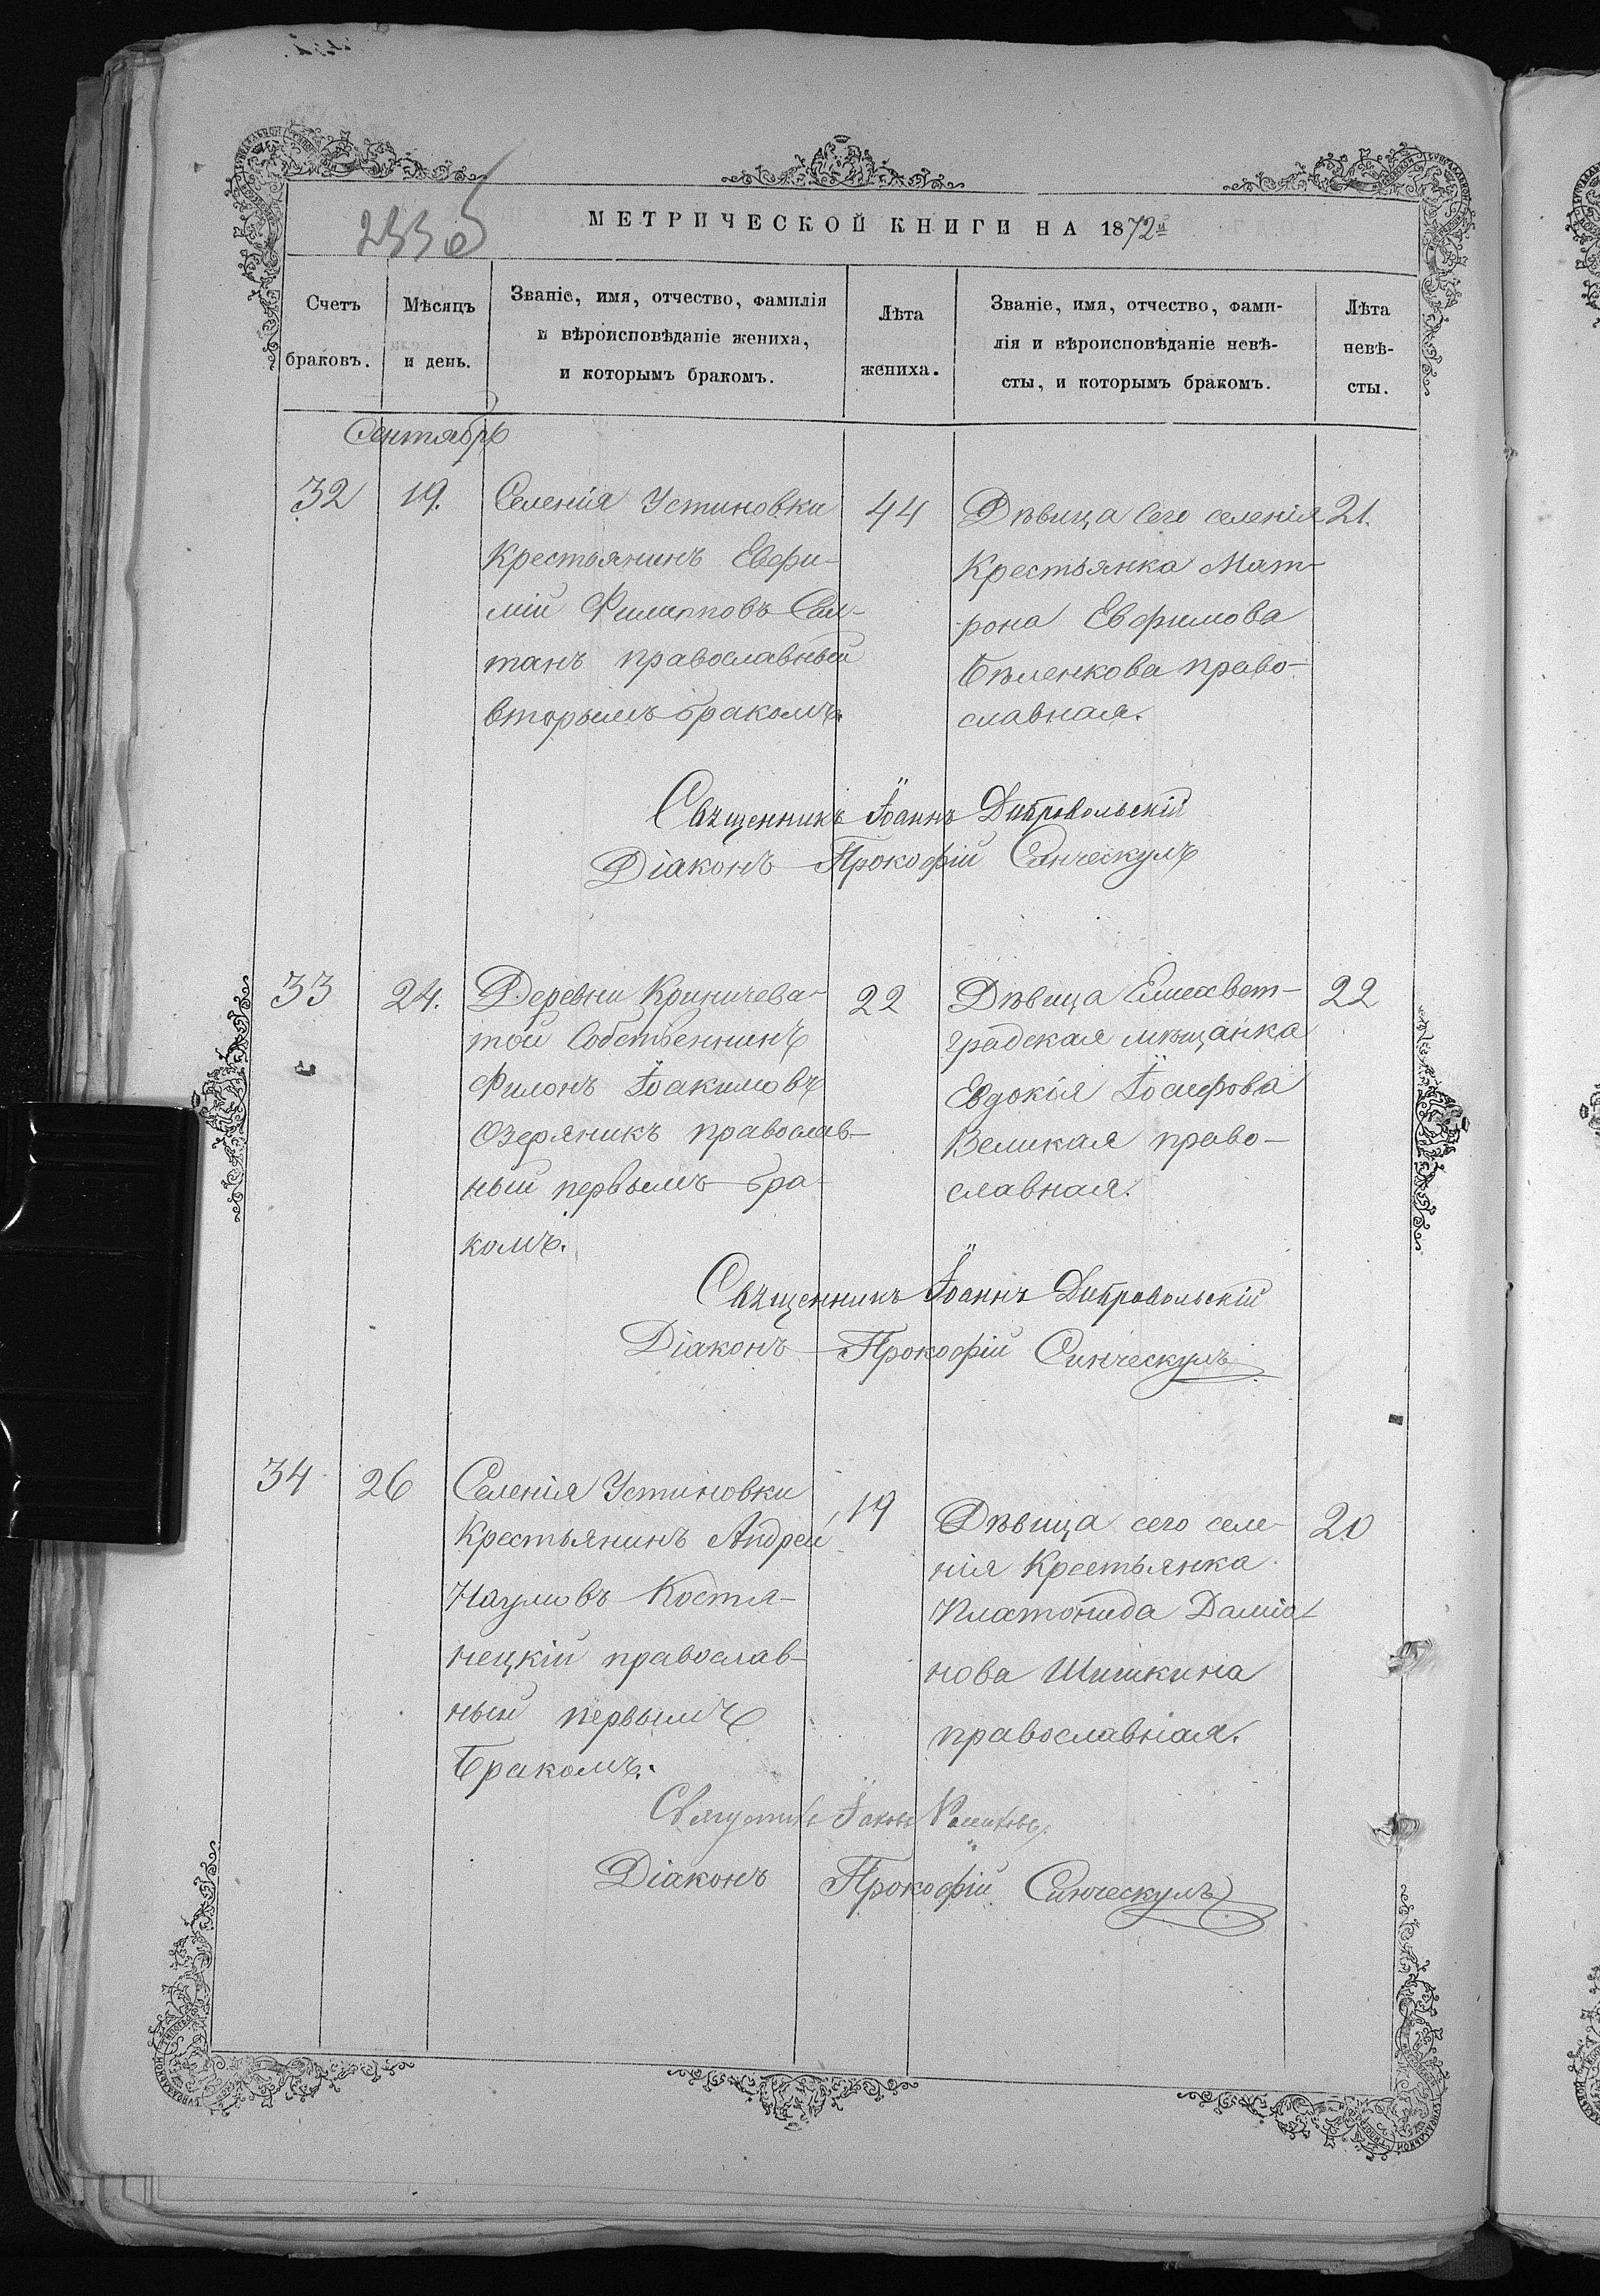 МЕТРИЧЕСКОЙ КНИГИ НА 1872й
Счетъ браковъ.
Мѣсяцъ и день.
Званіе, имя, отчество, фамилія
и вѣроисповѣданіе жениха,
и которымъ бракомъ.
Лѣта жениха.
Званіе, имя, отчество, фами-
лія и вѣроисповѣданіе невѣ-
сты, и которымъ бракомъ.
Лѣта
невѣ-
сты.
Сентябрь
32
19.
Селенія Устиновки
Крестьянинъ Евфи-
мій Филиповъ Сал-
танъ православный
вторымъ бракомъ.
44
Дѣвица сего селенія
Крестьянка Мат-
рона Евфимова
Бѣленкова право-
славная.
21.
Священникъ Іоаннъ Добровольскій
Діаконъ Прокофій Синческулъ
33
24.
Деревни Криничева-
той Собственникъ
Филонъ Іоакимовъ
Озеряникъ православ-
ный первымъ бра-
комъ.
22
Дѣвица Елисавет-
градская мѣщанка
Евдокія Іосифова
Великая право-
славная.
22
Священникъ Іоаннъ Добровольскій
Діаконъ Прокофій Синческулъ
34
26
Селенія Устиновки
Крестьянинъ Андрей
Наумовъ Костя-
нецкій православ-
ный первымъ
бракомъ.
19
Дѣвица сего селе-
нія Крестьянка
Платонида Даміа-
нова Шишкина
православная.
20
Діаконъ Прокофій Синческулъ